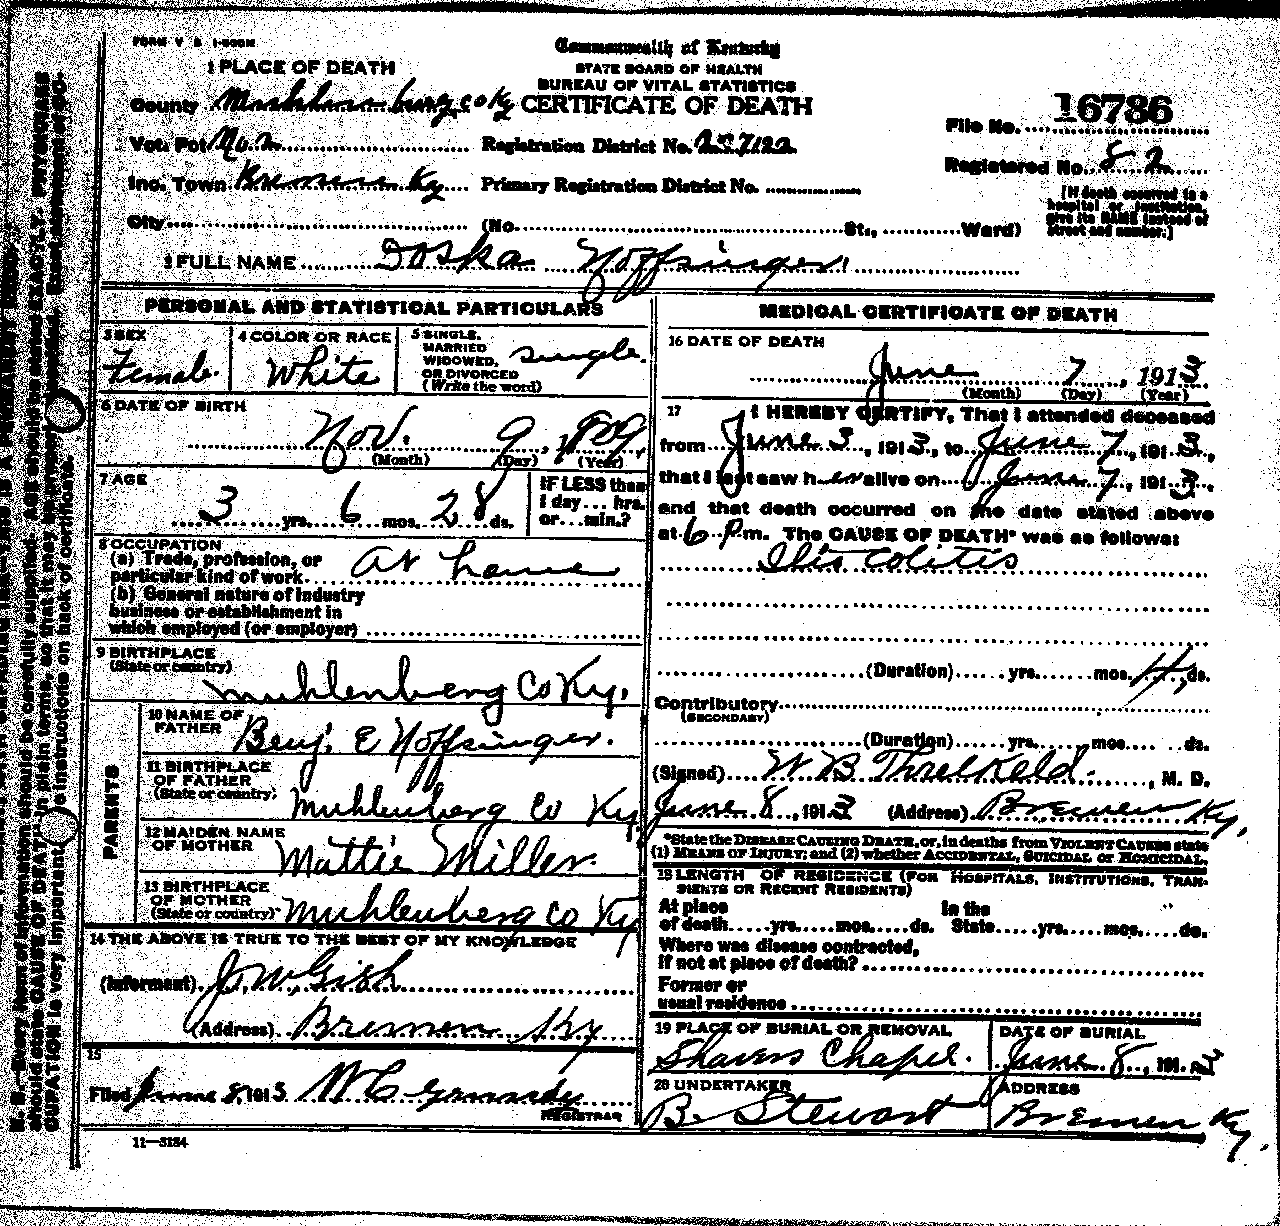 FORM V S 1-500M
Commonwealth of Kentucky
STATE BOARD OF HEALTH
BUREAU OF VITAL STATISTICS
CERTIFICATE OF DEATH
1 PLACE OF DEATH
County Muhlenburg co Ky
Vot. Pct No. 2 Registration District No.
Inc. Town Bremen Ky Primary Registration District No.
City (No. St., Ward)
File No. 16786
Registered No. 82
[If death occurred in a
hospital or institution,
give its NAME instead of
street and number.]
2 FULL NAME Doska Noffsinger
PERSONAL AND STATISTICAL PARTICULARS
3 SEX
Female.
4 COLOR OR RACE
White
5 SINGLE,
MARRIED
WIDOWED,
OR DIVORCED
(Write the word)
single.
6 DATE OF BIRTH
Nov. 9, 1909,
(Month) (Day) (Year)
7 AGE
3 yrs. 6 mos. 28 ds.
IF LESS than
1 day... hrs.
or...min.?
8 OCCUPATION
(a) Trade, profession, or
particular kind of work. At home
(b) General nature of industry
business or establishment in
which employed (or employer)
9 BIRTHPLACE
(State or country)
Muhlenberg Co Ky.
PARENTS
10 NAME OF
FATHER
Benj. E Noffsinger.
11 BIRTHPLACE
OF FATHER
(State or country)
Muhlenberg Co Ky.
12 MAIDEN NAME
OF MOTHER
Mattie Miller.
13 BIRTHPLACE
OF MOTHER
(State or country)
Muhlenberg Co Ky
14 THE ABOVE IS TRUE TO THE BEST OF MY KNOWLEDGE
(Informant) J. W. Gish
(Address) Bremen Ky
15
Filed June 8, 1913
REGISTRAR
11—3184
MEDICAL CERTIFICATE OF DEATH
16 DATE OF DEATH
June 7, 1913
(Month) (Day) (Year)
17 I HEREBY CERTIFY, That I attended deceased
from June 3, 1913, to June 7, 1913,
that I last saw h er alive on June 7, 1913.
and that death occurred on the date stated above
at 6 P m. The CAUSE OF DEATH* was as follows:
Ilio Colitis
(Duration) yrs. mos. 4, ds.
Contributory
(SECONDARY)
(Duration) yrs. mos. ds.
(Signed) W B Threlkeld. M. D.
June 8, 1913 (Address) Bremen Ky.
*State the DISEASE CAUSING DEATH, or, in deaths from VIOLENT CAUSES state
(1) MEANS OF INJURY; and (2) whether ACCIDENTAL, SUICIDAL or HOMICIDAL.
18 LENGTH OF RESIDENCE (FOR HOSPITALS, INSTITUTIONS, TRAN-
SIENTS OR RECENT RESIDENTS)
At place In the
of death yrs. mos. ds. State yrs. mos. ds.
Where was disease contracted,
If not at place of death?
Former or
usual residence
19 PLACE OF BURIAL OR REMOVAL
Shavers Chapel.
DATE OF BURIAL
June 8, 1913
20 UNDERTAKER
B. Stewart
ADDRESS
Bremen Ky.